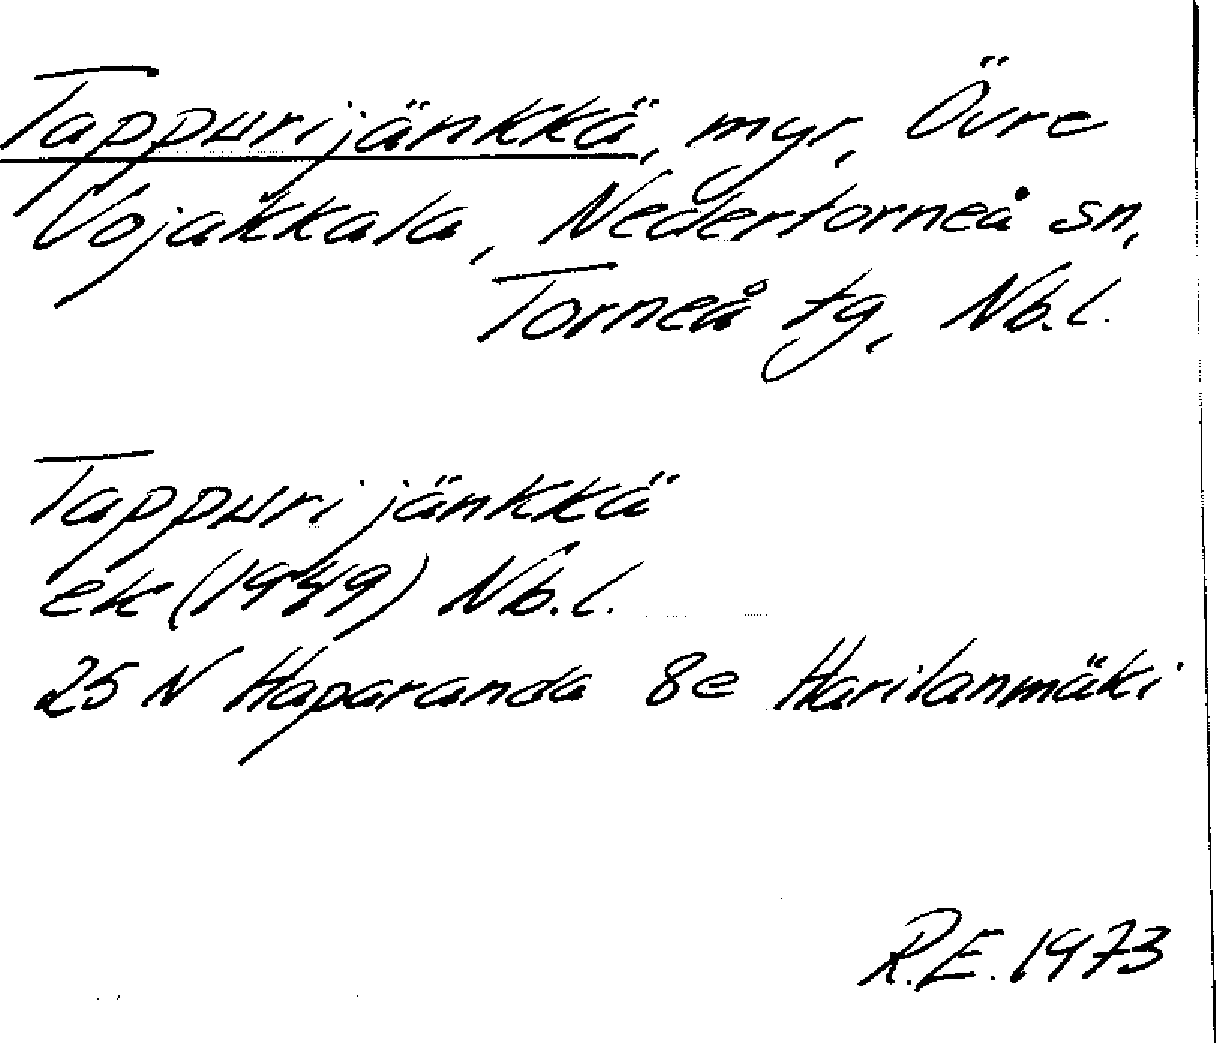 Tappurijänkkä, myr, Övre
Vojakkala, Nedertorneå sn,
Torneå tg, Nb.l.
Tappurijänkkä
ek (1949) Nb.l.
25 N Haparanda 8e Harilanmäki
R.E. 1973